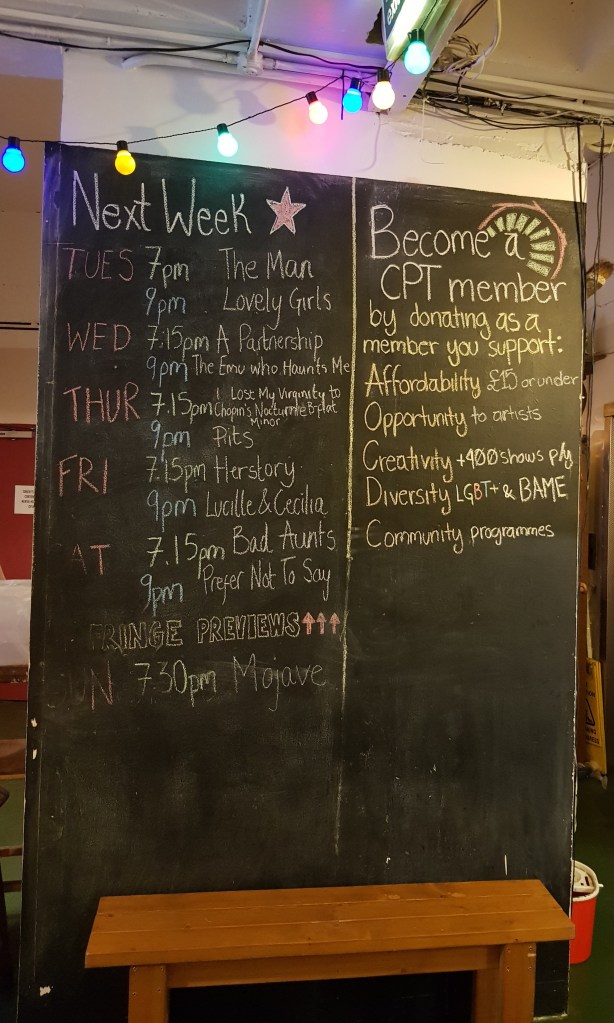 Next Week
TUES 7pm The Man
9pm Lovely Girls
WED 7:15pm A Partnership
9pm The Emu who Haunts Me
THUR 7.15pm I Lost My Virginity to
Chopin's Nocturne B-flat
Minor
9pm Pits
FRI 7.15pm Herstory
9pm Lucille & Cecilia
AT 7.15pm Bad Aunts
9pm Prefer Not To Say
FRINGE PREVIEWS↑↑↑
UN 7.30pm Mojave
Become a
CPT member
by donating as a
member you support:
Affordability £15 or under
Opportunity to artists
Creativity +400 shows p/y
Diversity LGBT+ & BAME
Community programmes